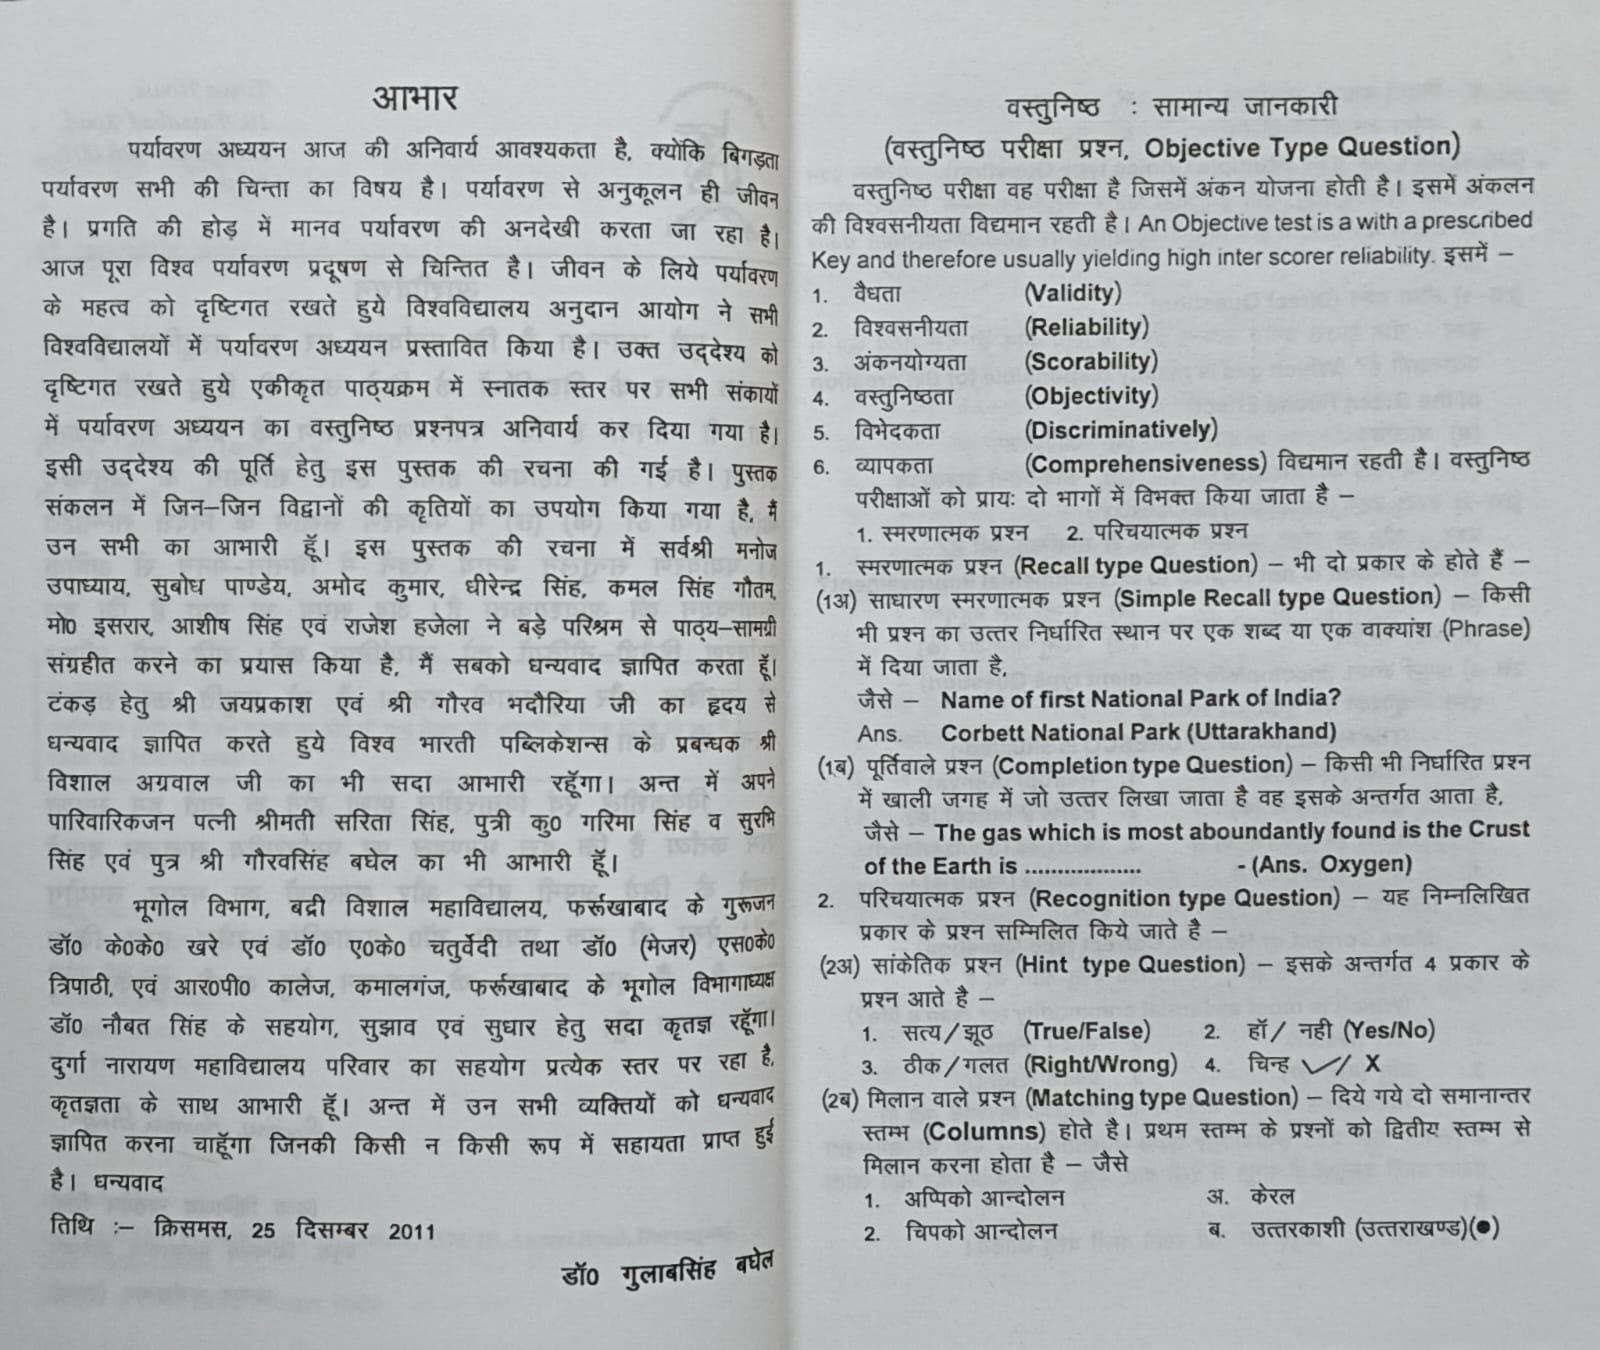 आभार
पर्यावरण अध्ययन आज की अनिवार्य आवश्यकता है, क्योंकि बिगड़ता
पर्यावरण सभी की चिन्ता का विषय है। पर्यावरण से अनुकूलन ही जीवन
है। प्रगति की होड़ में मानव पर्यावरण की अनदेखी करता जा रहा है।
आज पूरा विश्व पर्यावरण प्रदूषण से चिन्तित है। जीवन के लिये पर्यावरण
के महत्व को दृष्टिगत रखते हुये विश्वविद्यालय अनुदान आयोग ने सभी
विश्वविद्यालयों में पर्यावरण अध्ययन प्रस्तावित किया है। उक्त उद्देश्य को
दृष्टिगत रखते हुये एकीकृत पाठ्यक्रम में स्नातक स्तर पर सभी संकायों
में पर्यावरण अध्ययन का वस्तुनिष्ठ प्रश्नपत्र अनिवार्य कर दिया गया है।
इसी उद्देश्य की पूर्ति हेतु इस पुस्तक की रचना की गई है। पुस्तक
संकलन में जिन–जिन विद्वानों की कृतियों का उपयोग किया गया है, मैं
उन सभी का आभारी हूॅ। इस पुस्तक की रचना में सर्वश्री मनोज
उपाध्याय, सुबोध पाण्डेय, अमोद कुमार, धीरेन्द्र सिंह, कमल सिंह गौतम,
मो0 इसरार, आशीष सिंह एवं राजेश हजेला ने बड़े परिश्रम से पाठ्य–सामग्री
संग्रहीत करने का प्रयास किया है, मैं सबको धन्यवाद ज्ञापित करता हूॅ।
टंकड़ हेतु श्री जयप्रकाश एवं श्री गौरव भदौरिया जी का हृदय से
धन्यवाद ज्ञापित करते हुये विश्व भारती पब्लिकेशन्स के प्रबन्धक श्री
विशाल अग्रवाल जी का भी सदा आभारी रहूॅगा। अन्त में अपने
पारिवारिकजन पत्नी श्रीमती सरिता सिंह, पुत्री कु0 गरिमा सिंह व सुरभि
सिंह एवं पुत्र श्री गौरवसिंह बघेल का भी आभारी हूॅ।
भूगोल विभाग, बद्री विशाल महाविद्यालय, फर्रूखाबाद के गुरूजन
डॉ0 के0के0 खरे एवं डॉ0 ए0के0 चतुर्वेदी तथा डॉ0 (मेजर) एस0के0
त्रिपाठी, एवं आर0पी0 कालेज, कमालगंज, फर्रूखाबाद के भूगोल विभागाध्यक्ष
डॉ0 नौबत सिंह के सहयोग, सुझाव एवं सुधार हेतु सदा कृतज्ञ रहूॅगा।
दुर्गा नारायण महाविद्यालय परिवार का सहयोग प्रत्येक स्तर पर रहा है,
कृतज्ञता के साथ आभारी हूॅ। अन्त में उन सभी व्यक्तियों को धन्यवाद
ज्ञापित करना चाहूॅगा जिनकी किसी न किसी रूप में सहायता प्राप्त हुई
है। धन्यवाद
तिथि :– क्रिसमस, 25 दिसम्बर 2011
डॉ0 गुलाबसिंह बघेल
वस्तुनिष्ठ : सामान्य जानकारी
(वस्तुनिष्ठ परीक्षा प्रश्न, Objective Type Question)
वस्तुनिष्ठ परीक्षा वह परीक्षा है जिसमें अंकन योजना होती है। इसमें अंकलन
की विश्वसनीयता विद्यमान रहती है। An Objective test is a with a prescribed
Key and therefore usually yielding high inter scorer reliability. इसमें –
1. वैधता (Validity)
2. विश्वसनीयता (Reliability)
3. अंकनयोग्यता (Scorability)
4. वस्तुनिष्ठता (Objectivity)
5. विभेदकता (Discriminatively)
6. व्यापकता (Comprehensiveness) विद्यमान रहती है। वस्तुनिष्ठ
परीक्षाओं को प्रायः दो भागों में विभक्त किया जाता है –
1. स्मरणात्मक प्रश्न 2. परिचयात्मक प्रश्न
1. स्मरणात्मक प्रश्न (Recall type Question) – भी दो प्रकार के होते हैं –
(1अ) साधारण स्मरणात्मक प्रश्न (Simple Recall type Question) – किसी
भी प्रश्न का उत्तर निर्धारित स्थान पर एक शब्द या एक वाक्यांश (Phrase)
में दिया जाता है,
जैसे – Name of first National Park of India?
Ans. Corbett National Park (Uttarakhand)
(1ब) पूर्तिवाले प्रश्न (Completion type Question) – किसी भी निर्धारित प्रश्न
में खाली जगह में जो उत्तर लिखा जाता है वह इसके अन्तर्गत आता है,
जैसे – The gas which is most aboundantly found is the Crust
of the Earth is .................. - (Ans. Oxygen)
2. परिचयात्मक प्रश्न (Recognition type Question) – यह निम्नलिखित
प्रकार के प्रश्न सम्मिलित किये जाते है –
(2अ) सांकेतिक प्रश्न (Hint type Question) – इसके अन्तर्गत 4 प्रकार के
प्रश्न आते है –
1. सत्य/झूठ (True/False) 2. हॉ/ नही (Yes/No)
3. ठीक/गलत (Right/Wrong) 4. चिन्ह ✓/ X
(2ब) मिलान वाले प्रश्न (Matching type Question) – दिये गये दो समानान्तर
स्तम्भ (Columns) होते है। प्रथम स्तम्भ के प्रश्नों को द्वितीय स्तम्भ से
मिलान करना होता है – जैसे
1. अप्पिको आन्दोलन अ. केरल
2. चिपको आन्दोलन ब. उत्तरकाशी (उत्तराखण्ड)(●)